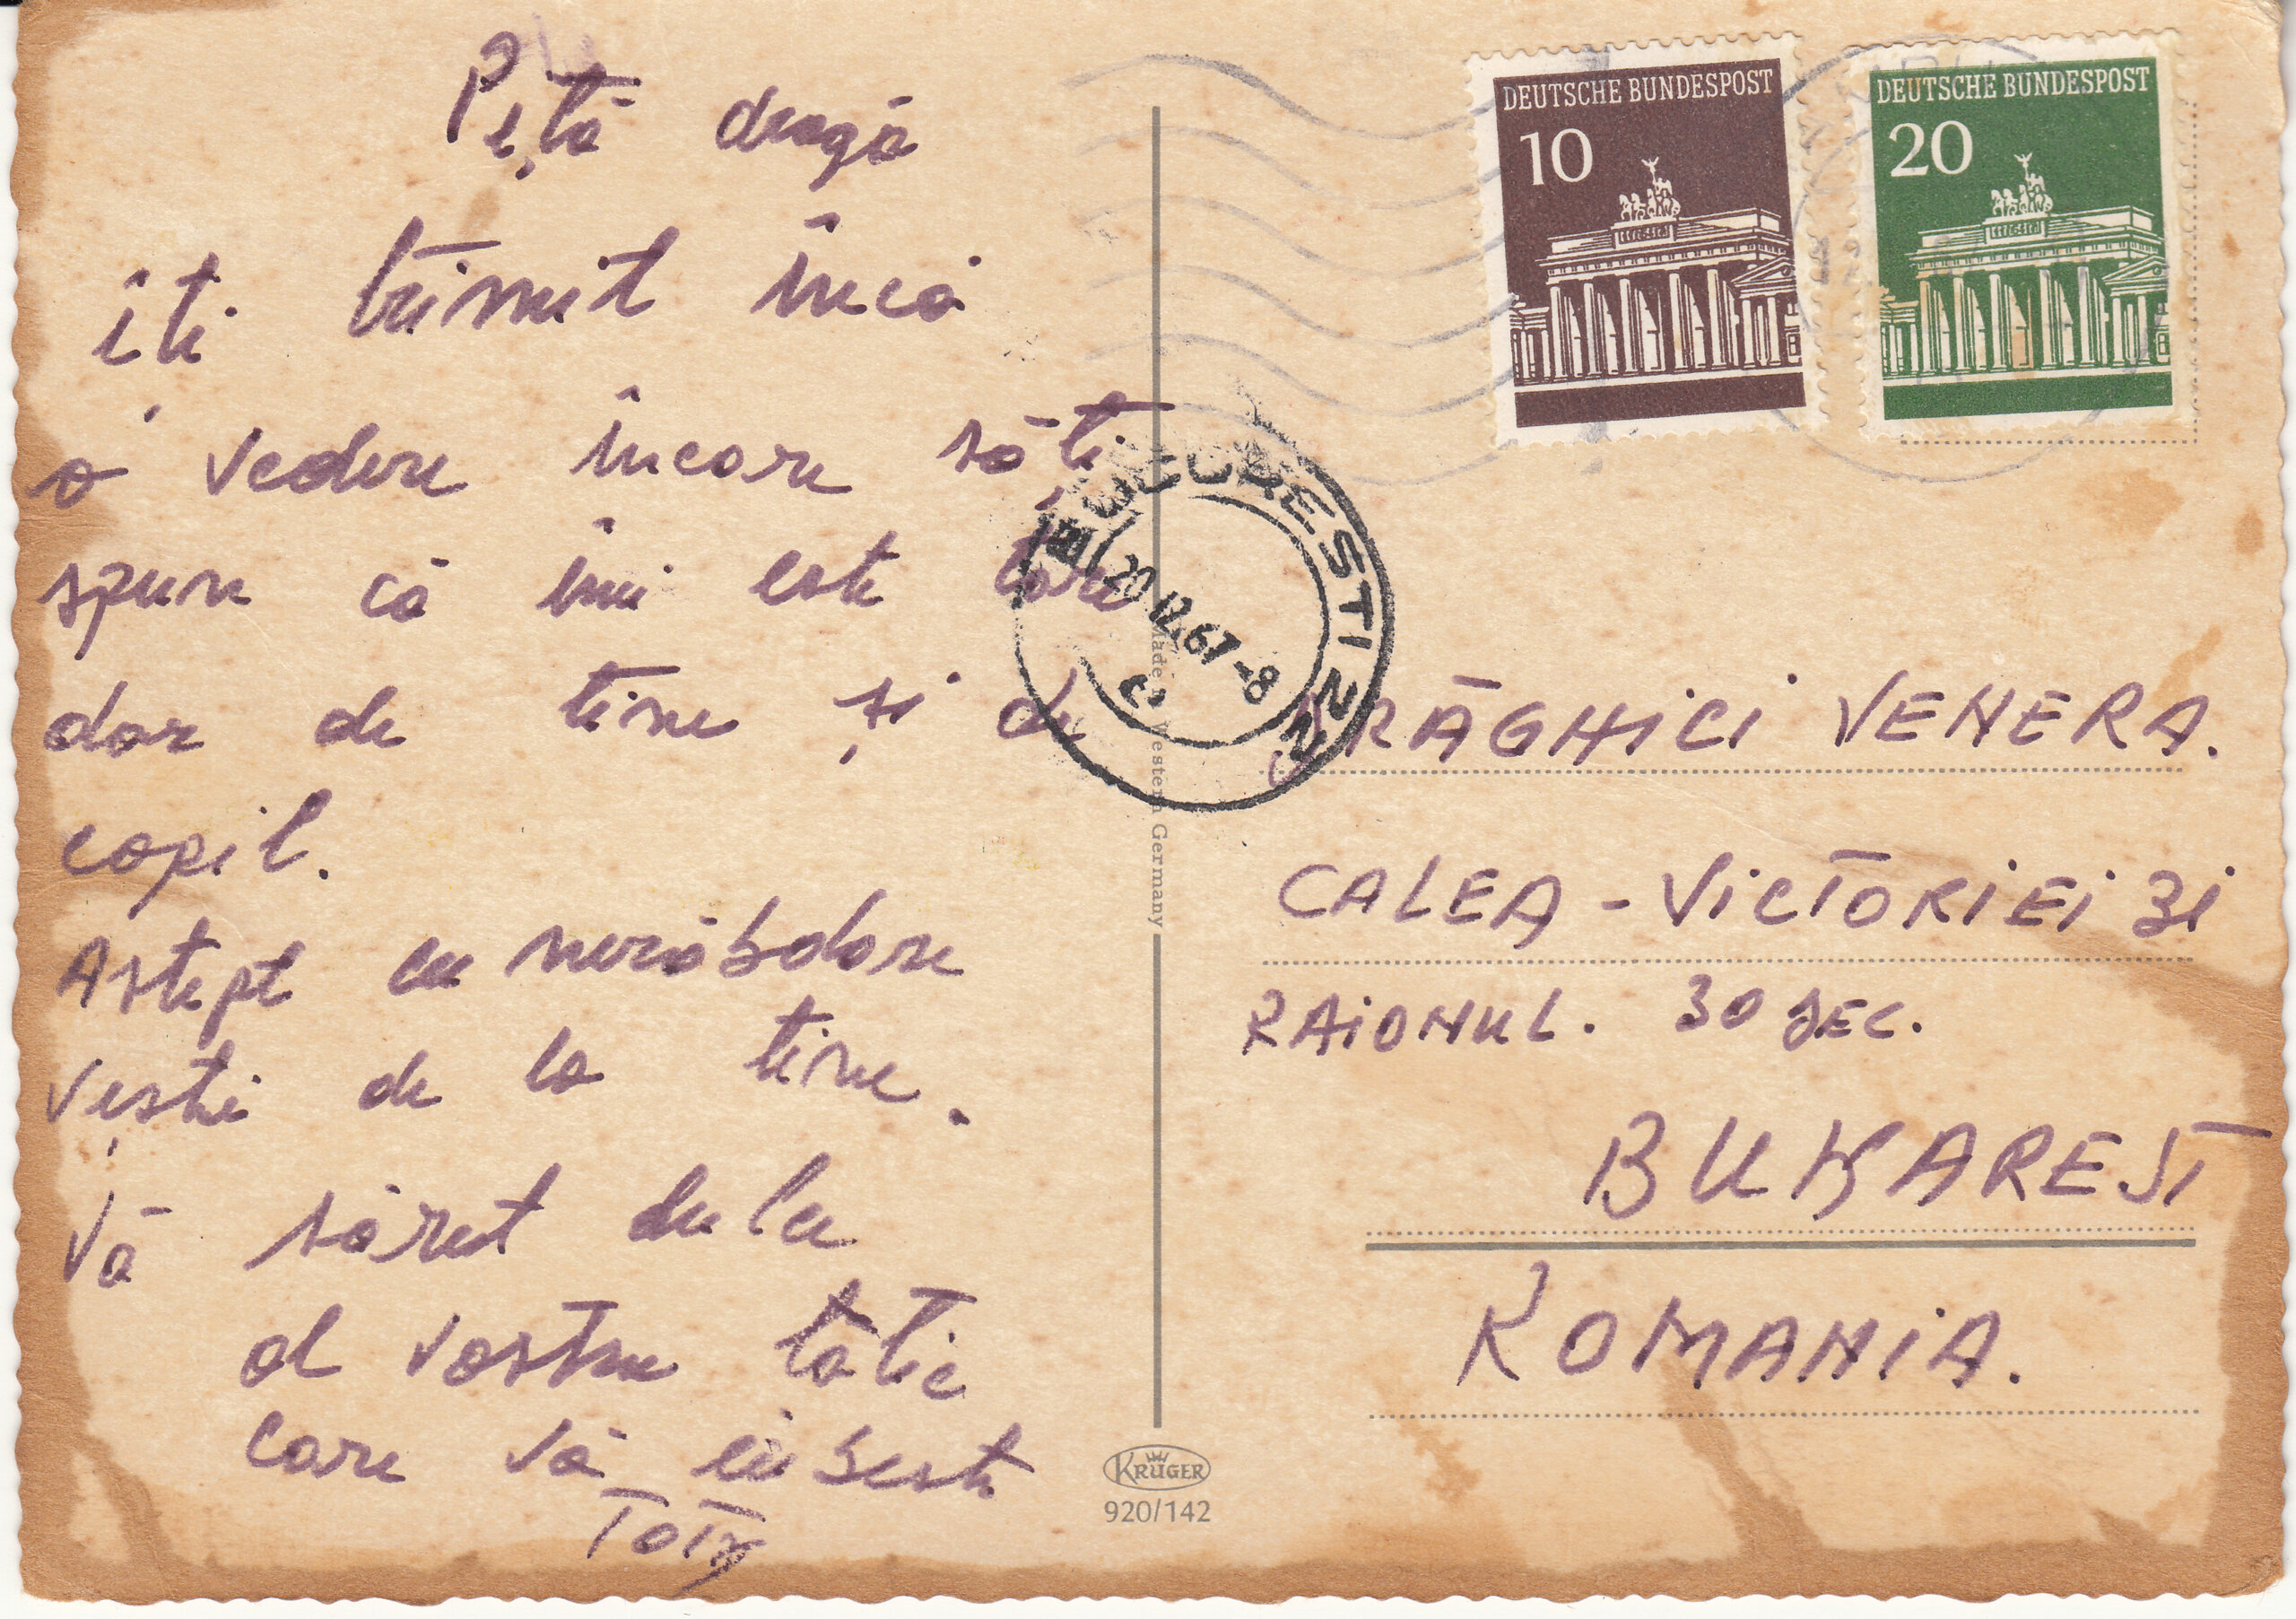 Pița dragă
îți trimit încă
o vedere în care să ți
spun că îmi este tare
dor de tine și de
copil.
Astept cu nerăbdare
vești de la tine.
Vă sărut dulce
al vostru tătic
care vă iubeste
Toty
DEUTSCHE BUNDESPOST
10
DEUTSCHE BUNDESPOST
20
BUCURESTI
20 12.67-8
DRĂGHICI VENERA.
CALEA - VICTORIEI 31
RAIONUL. 30 DEC.
BUKAREST
ROMANIA.
Made in Western Germany
KRÜGER
920/142